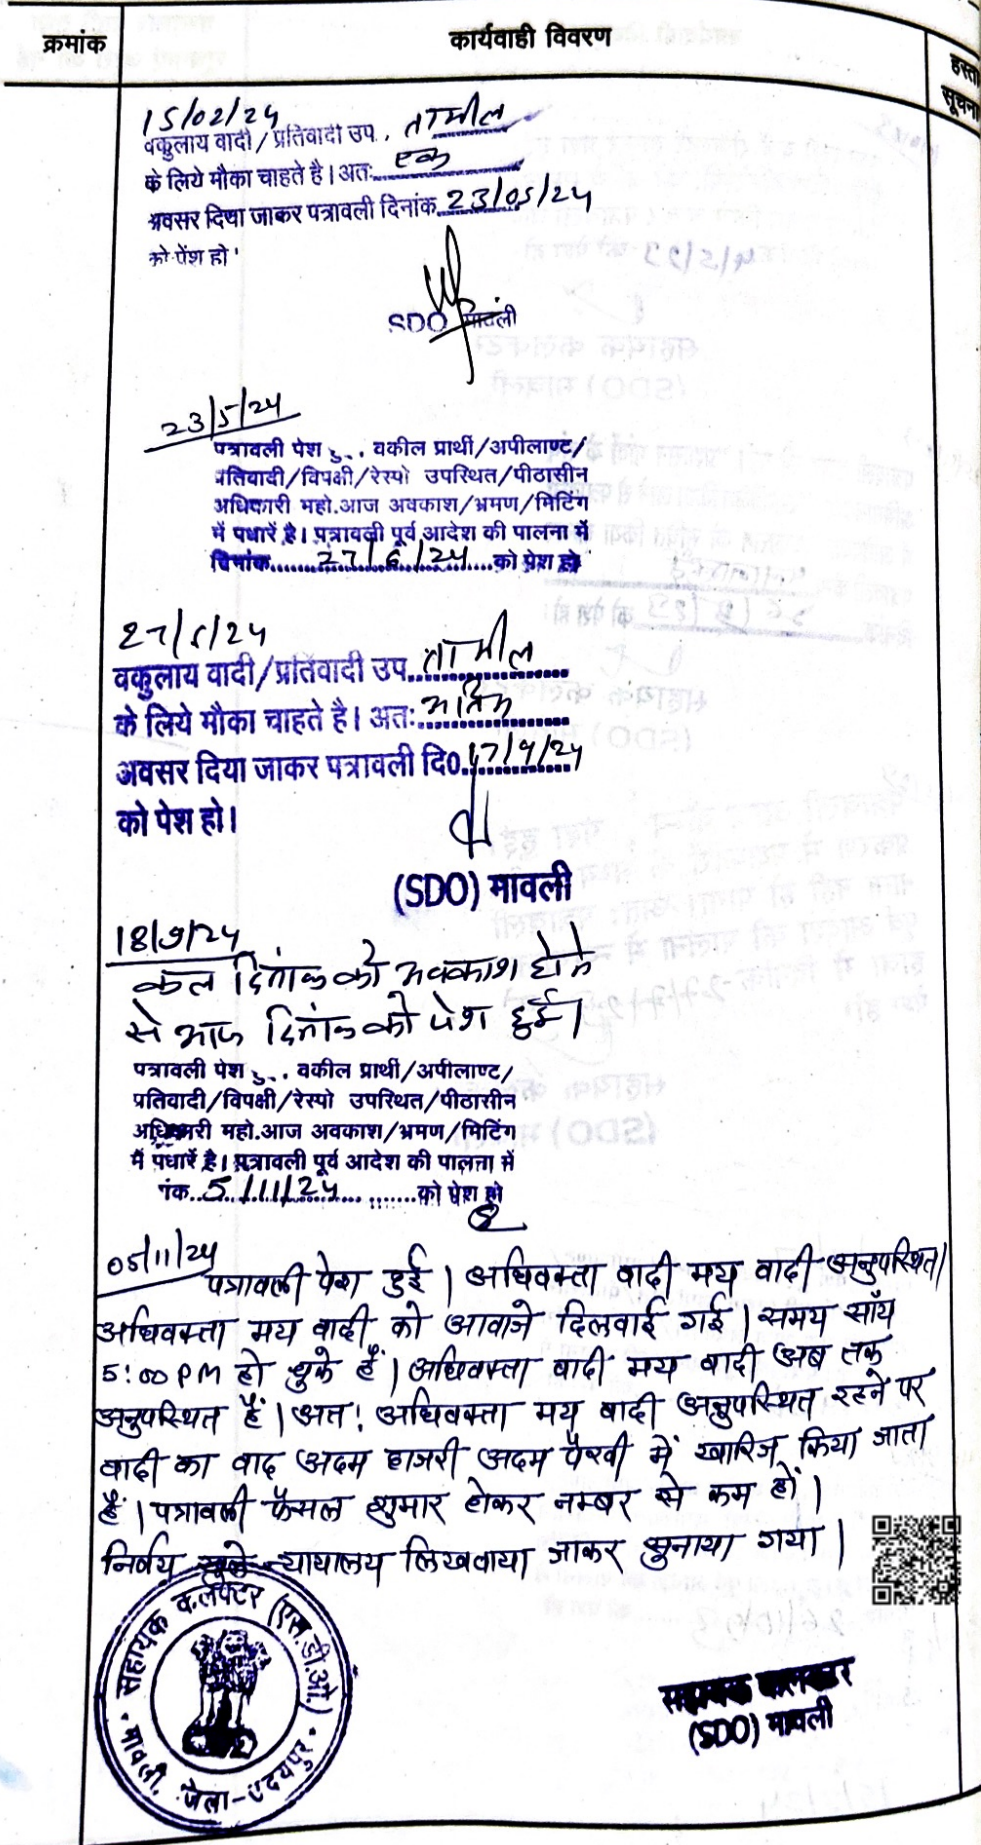 क्रमांक
कार्यवाही विवरण
हस्ता
सूचना
15/02/24
वकुलाय वादी/प्रतिवादी उप. तामील
के लिये मौका चाहते है। अतः एक
अवसर दिया जाकर पत्रावली दिनांक 23/05/24
को पेंश हो
SDO मावली
23/5/24
पत्रावली पेश हु... वकील प्रार्थी/अपीलाण्ट/
प्रतिवादी/विपक्षी/रेस्पो उपस्थित/पीठासीन
अधिकारी महो.आज अवकाश/भ्रमण/मिटिंग
में पधारें है। पत्रावली पूर्व आदेश की पालना में
दिनांक......27/6/24......को पेश हो
27/6/24
वकुलाय वादी/प्रतिवादी उप..तामील
के लिये मौका चाहते है। अतः अंतिम
अवसर दिया जाकर पत्रावली दि0.17/9/24
को पेश हो।
(SDO) मावली
18/9/24
कल दिनांक को अवकाश होने
से आज दिनांक को पेश हुई।
पत्रावली पेश हु... वकील प्रार्थी/अपीलाण्ट/
प्रतिवादी/विपक्षी/रेस्पो उपस्थित/पीठासीन
अधिकारी महो.आज अवकाश/भ्रमण/मिटिंग
में पधारें है। पत्रावली पूर्व आदेश की पालना में
नंक..5/11/24.......को पेश हो
05/11/24
पत्रावली पेश हुई। अधिवक्ता वादी मय वादी अनुपस्थित।
अधिवक्ता मय वादी को आवाजे दिलवाई गई। समय साँय
5:00 PM हो चुके हैं। अधिवक्ता वादी मय वादी अब तक
अनुपस्थित हैं। अतः अधिवक्ता मय वादी अनुपस्थित रहने पर
वादी का वाद अदम हाजरी अदम पैरवी में खारिज किया जाता
हैं। पत्रावली फैसल शुमार होकर नम्बर से कम हों।
निर्णय खुले न्यायालय लिखवाया जाकर सुनाया गया।
सहायक कलेक्टर (एस.डी.ओ.)
मावली, जिला-उदयपुर
सहायक कलक्टर
(SDO) मावली